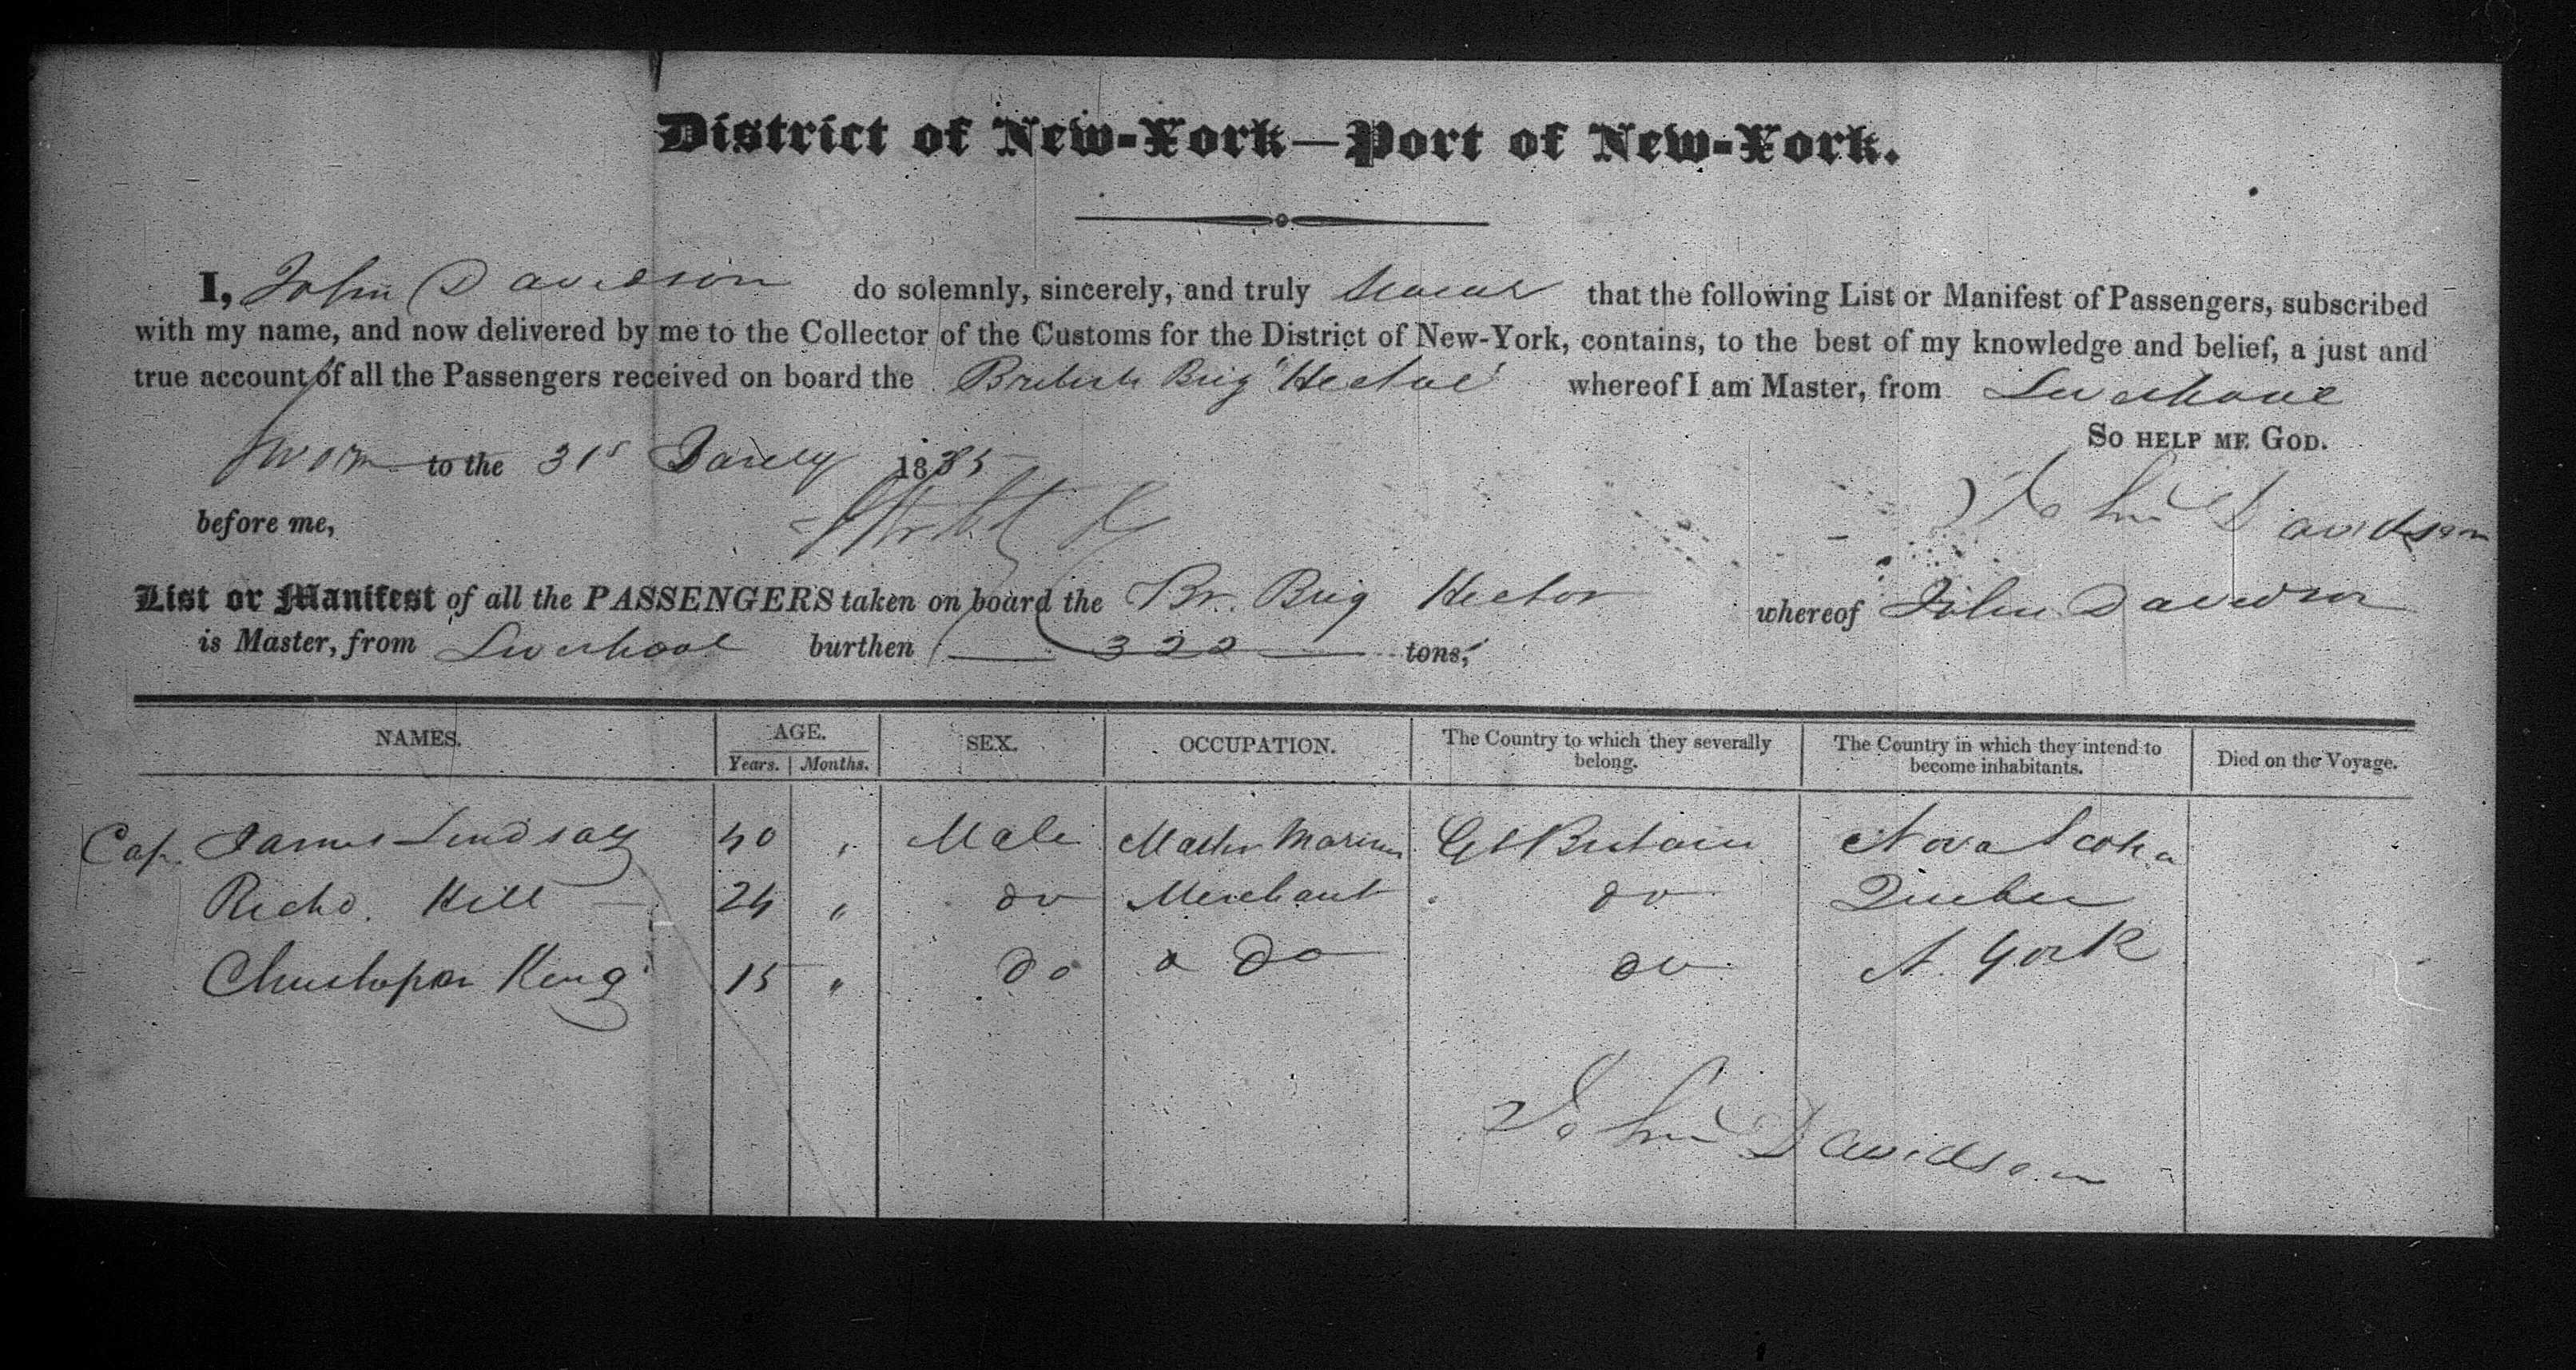 District of New-York—Port of New-York.
I, John Davidson do solemnly, sincerely, and truly swear that the following List or Manifest of Passengers, subscribed
with my name, and now delivered by me to the Collector of the Customs for the District of New-York, contains, to the best of my knowledge and belief, a just and
true account of all the Passengers received on board the British Brig "Hector" whereof I am Master, from Liverpool
So help me God.
Sworn to the 31s Jany 1835
John Davidson
before me,
List or Manifest of all the PASSENGERS taken on board the Br. Brig Hector whereof John Davidson
is Master, from Liverpool burthen 322 tons,
NAMES. AGE. SEX. OCCUPATION. The Country to which they severally belong. The Country in which they intend to become inhabitants. Died on the Voyage.
Years. Months.
Cap. James Lindsay 40 " Male Master Mariner Gt Britain Nova Scotia
Richd. Hill 24 " do Merchant do Quebec
Christopher King 15 " do do do N. York
John Davidson